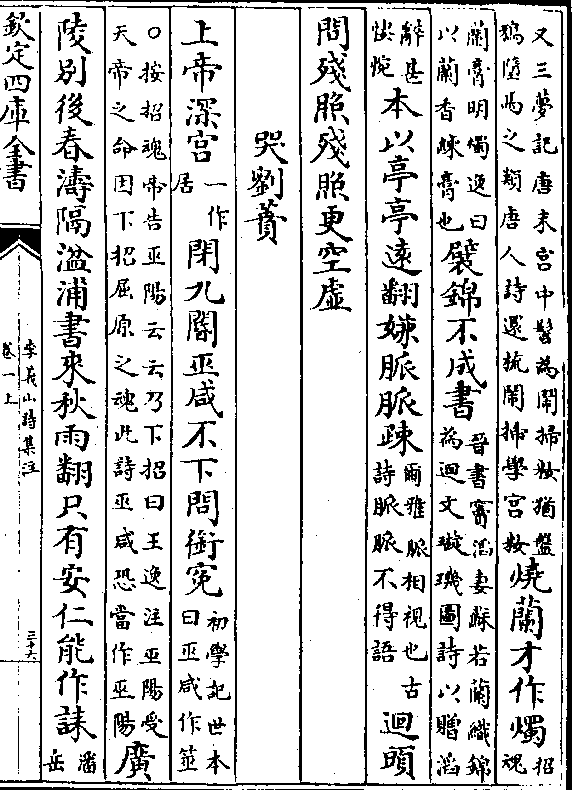 又三夢記唐末宮中髻為鬧掃妝猶盤鴉隨馬之類唐人詩還梳鬧掃學宮妝燒蘭才作燭招魂
蘭膏明燭逸曰以蘭香煉膏也襞錦不成書晉書竇滔妻蘇若蘭織錦為迴文璇璣圖詩以贈滔
辭甚悽惋本以亭亭遠翻嫌脈脈疎爾雅脈相視也古詩脈脈不得語迴頭
問殘照殘照更空虛
哭劉蕡
上帝深宮一作居閉九閽巫咸不下問銜冤初學記世本曰巫咸作筮
○按招魂帝告巫陽云云乃下招曰王逸注巫陽受天帝之命因下招屈原之魂此詩巫咸恐當作巫陽廣
陵別後春濤隔湓浦書來秋雨翻只有安仁能作誄潘岳
欽定四庫全書
李義山詩集注
卷一上
三十六